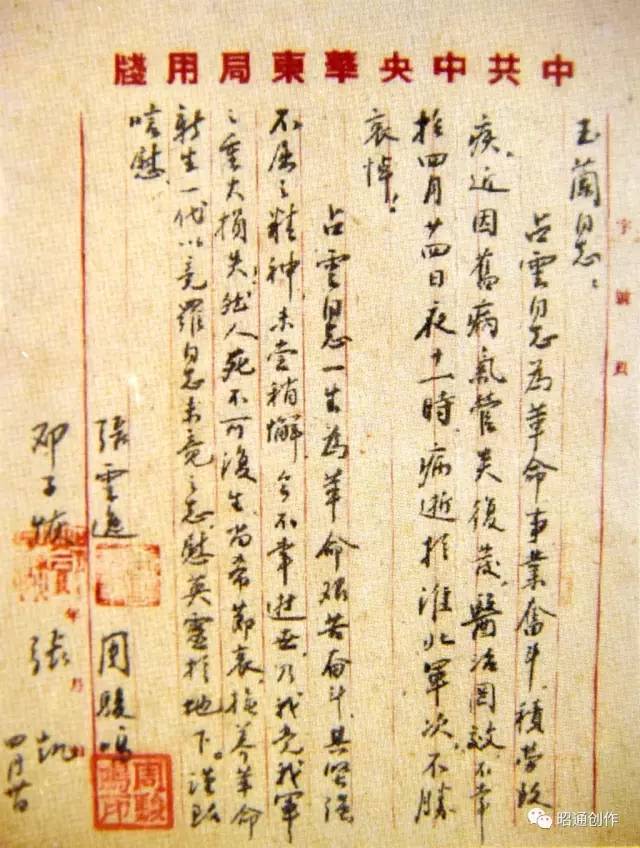 中共中央華東局用牋
字號頁
玉蘭同志：
占雲同志為革命事業奮斗，積勞致
疾。近因舊病氣管炎復發，醫治罔效，不幸
於四月廿四日夜十一時，病逝於淮北軍次，不勝
哀悼！
占雲同志一生為革命艰苦奋斗，其堅強
不屈之精神，未尝稍懈，今不幸逝世，乃我党我軍
之重大損失！然人死不可復生，尚希節哀，撫养革命
新生一代，以竟羅同志未竟之志，慰英靈於地下。谨致
唁慰
張雲逸
周駿鳴
邓子恢
張凯
年月
四月廿
周駿鳴印
昭通创作